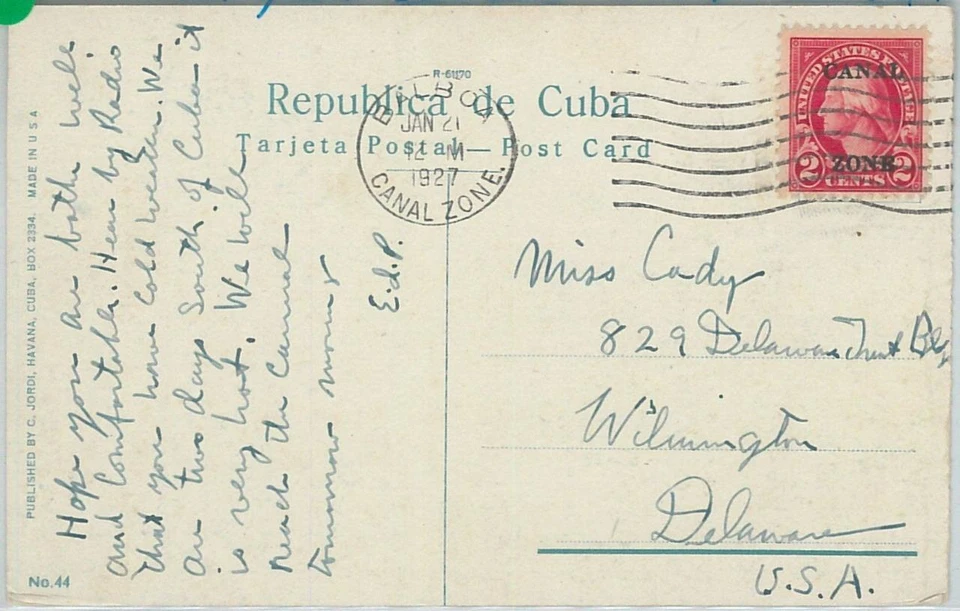 R-61170
Republica de Cuba
Tarjeta Postal — Post Card
BALBOA
JAN 21
12 M
1927
CANAL ZONE.
UNITED STATES POSTAGE
CANAL
ZONE
2 CENTS 2
PUBLISHED BY C. JORDI, HAVANA, CUBA, BOX 2334. MADE IN U S A
Hope you are both well
and comfortable. Hear by Radio
that you have cold weather. We
are two days South of Cuba & it
is very hot. We will
reach the Canal
tomorrow morning
E.d.P.
Miss Cady
829 Delaware Trust Bldg
Wilmington
Delaware
U.S.A.
No. 44